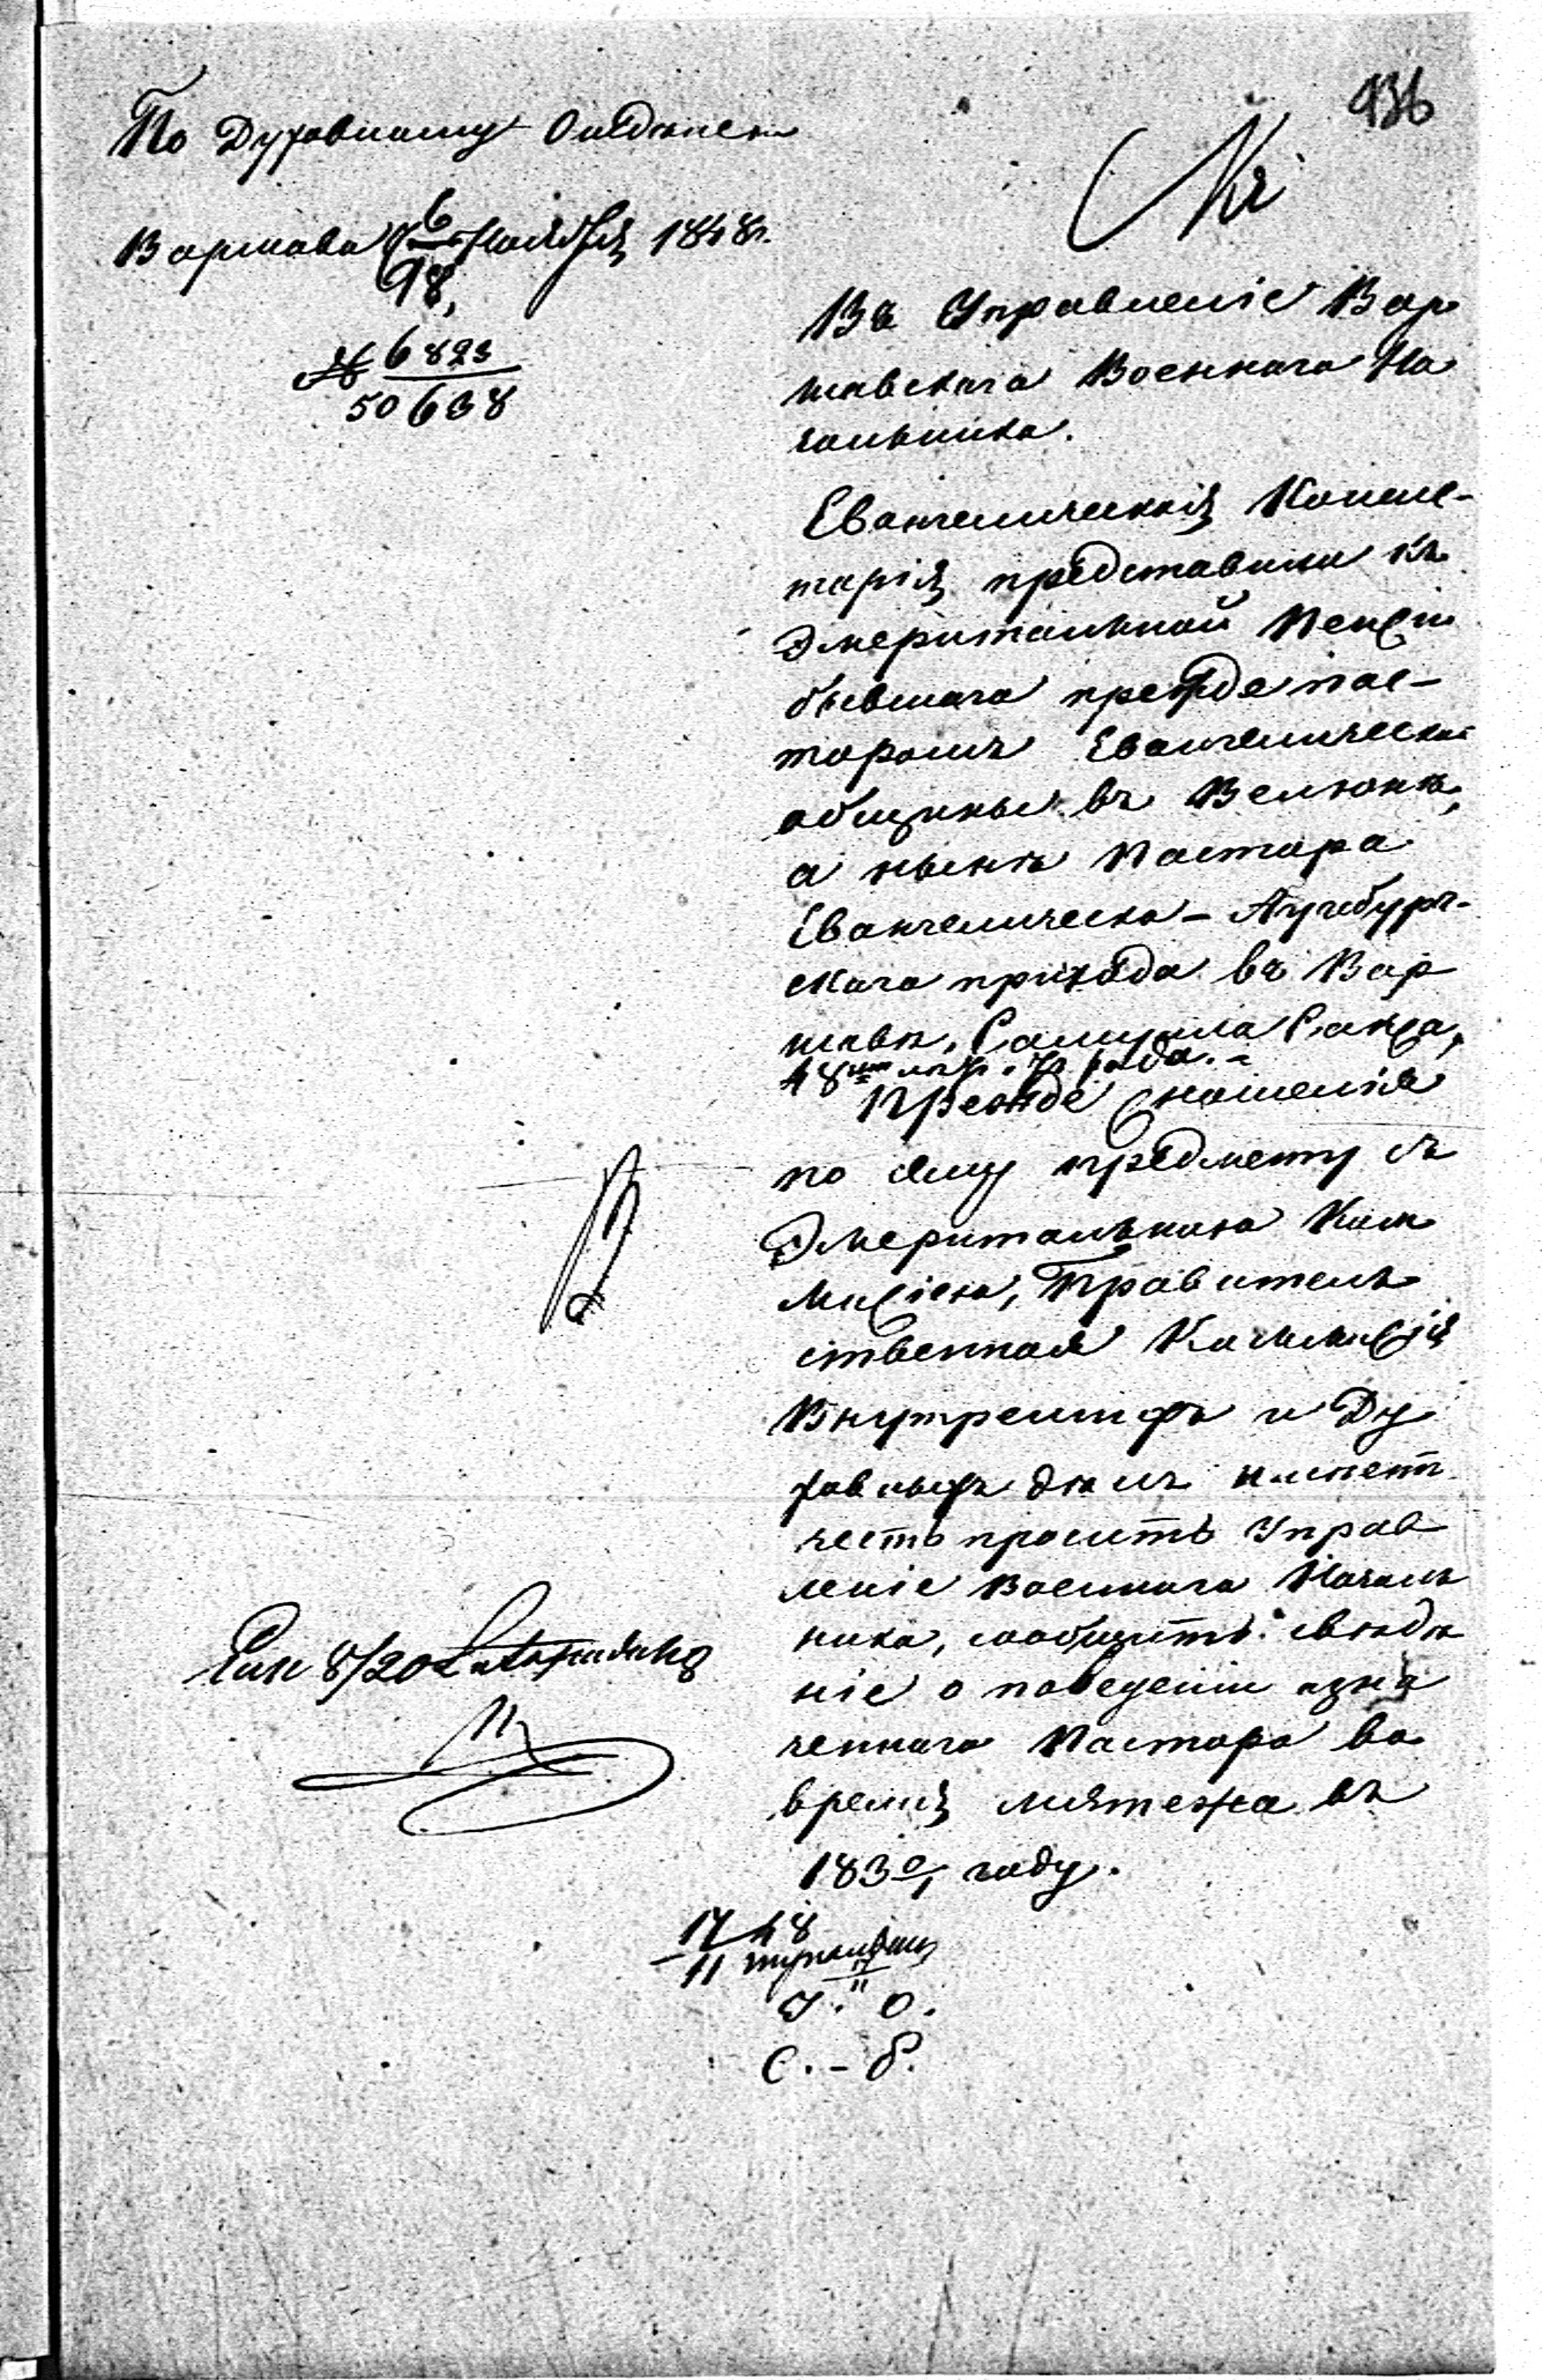 936
По Духовному Отдѣленію
Варшава 6/18 Ноября 1848 г.
№ 6823/50638
Въ Управленіе Вар
шавскаго Военнаго На
чальника.
Евангелическая Консис-
торія представила къ
Эмеритальной Пенсіи
бывшаго прежде пас-
торомъ Евангелической
общины въ Велюнѣ,
а нынѣ Пастора
Евангелическо-Аугсбург-
скаго прихода въ Вар
шавѣ, Самуила
48
Прежде сношенія
по сему предмету съ
Эмеритальною Ком
мисіею, Правитель
ственная Коммисія
Внутреннихъ и Ду
ховныхъ дѣлъ имѣетъ
честь просить Управ
леніе Военнаго Началь
ника, сообщить свѣдѣ
ніе о поведеніи озна
ченнаго Пастора во
время мятежа въ
1830/1 году.
8/20
17 48
11
17/11
О.
С. - б.